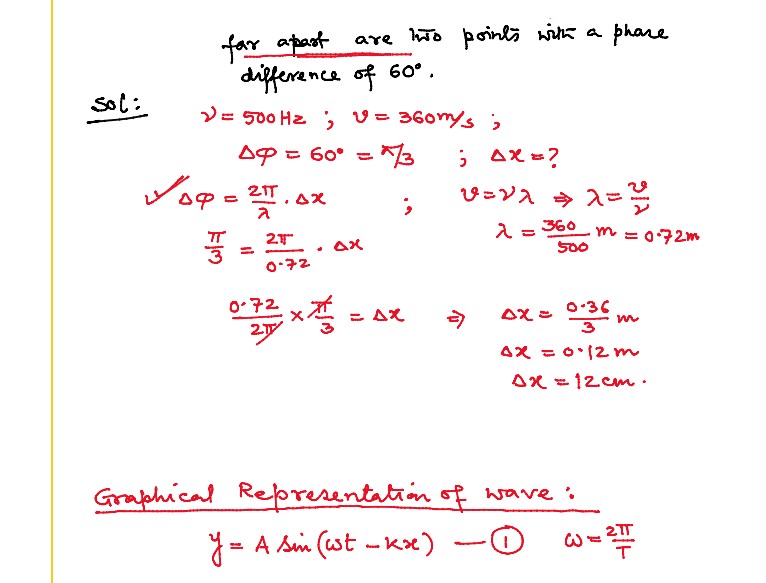 far apart are two points with a phase
difference of 60°.
Sol:
ν = 500 Hz ; v = 360 m/s ;
Δφ = 60° = π/3 ; Δx = ?
✓ Δφ = 2π/λ . Δx ; v = νλ ⇒ λ = v/ν
π/3 = 2π/0.72 . Δx λ = 360/500 m = 0.72m
0.72/2π × π/3 = Δx ⇒ Δx = 0.36/3 m
Δx = 0.12 m
Δx = 12 cm .
Graphical Representation of wave :
y = A sin (ωt - kx) — ① ω = 2π/T